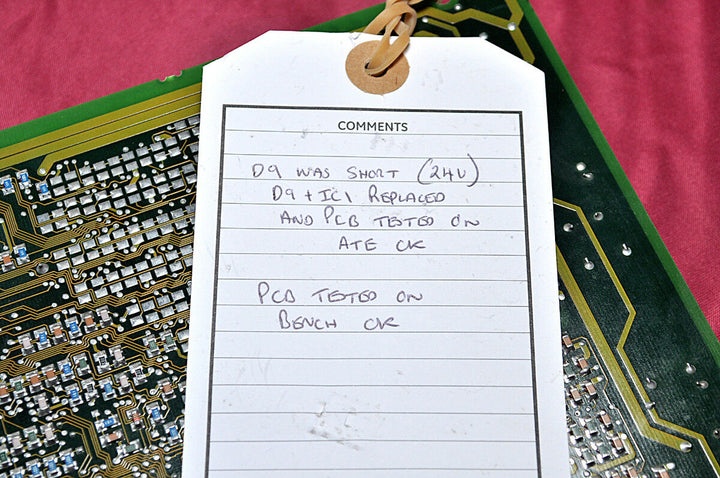 COMMENTS
D9 WAS SHORT (24V)
D9 + IC1 REPLACED
AND PCB TESTED ON
ATE OK
PCB TESTED ON
BENCH OK